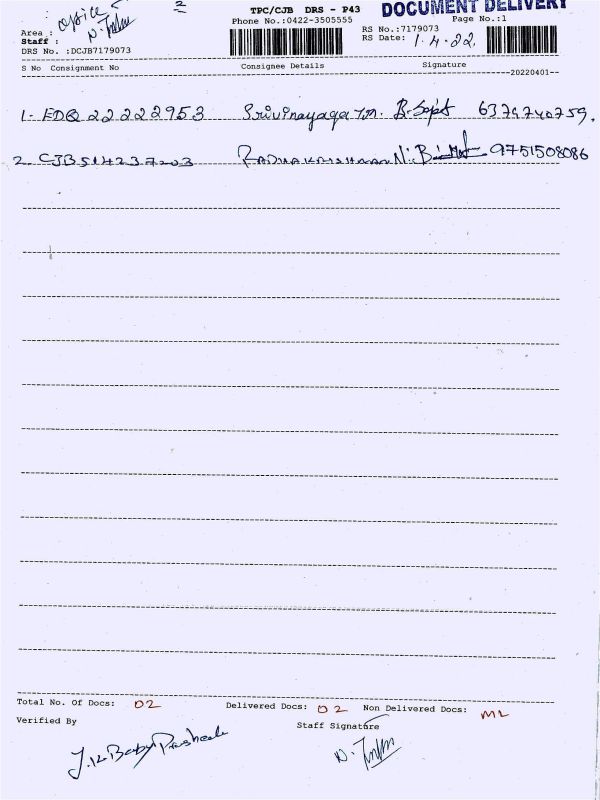 TPC/CJB DRS - P43
DOCUMENT DELIVERY
Phone No.:0422-3505555
Page No.:1
Area : office
RS No.:7179073
Staff :
RS Date: 1.4.22.
DRS No. :DCJB7179073
S No Consignment No Consignee Details Signature
20220401
1. EDQ 22222953 Srivinayaga 6379740759.
2. CJB514237203 RADHAKRISHNAN N. 9751508086
Total No. Of Docs: 02 Delivered Docs: 02 Non Delivered Docs:
Verified By Staff Signature